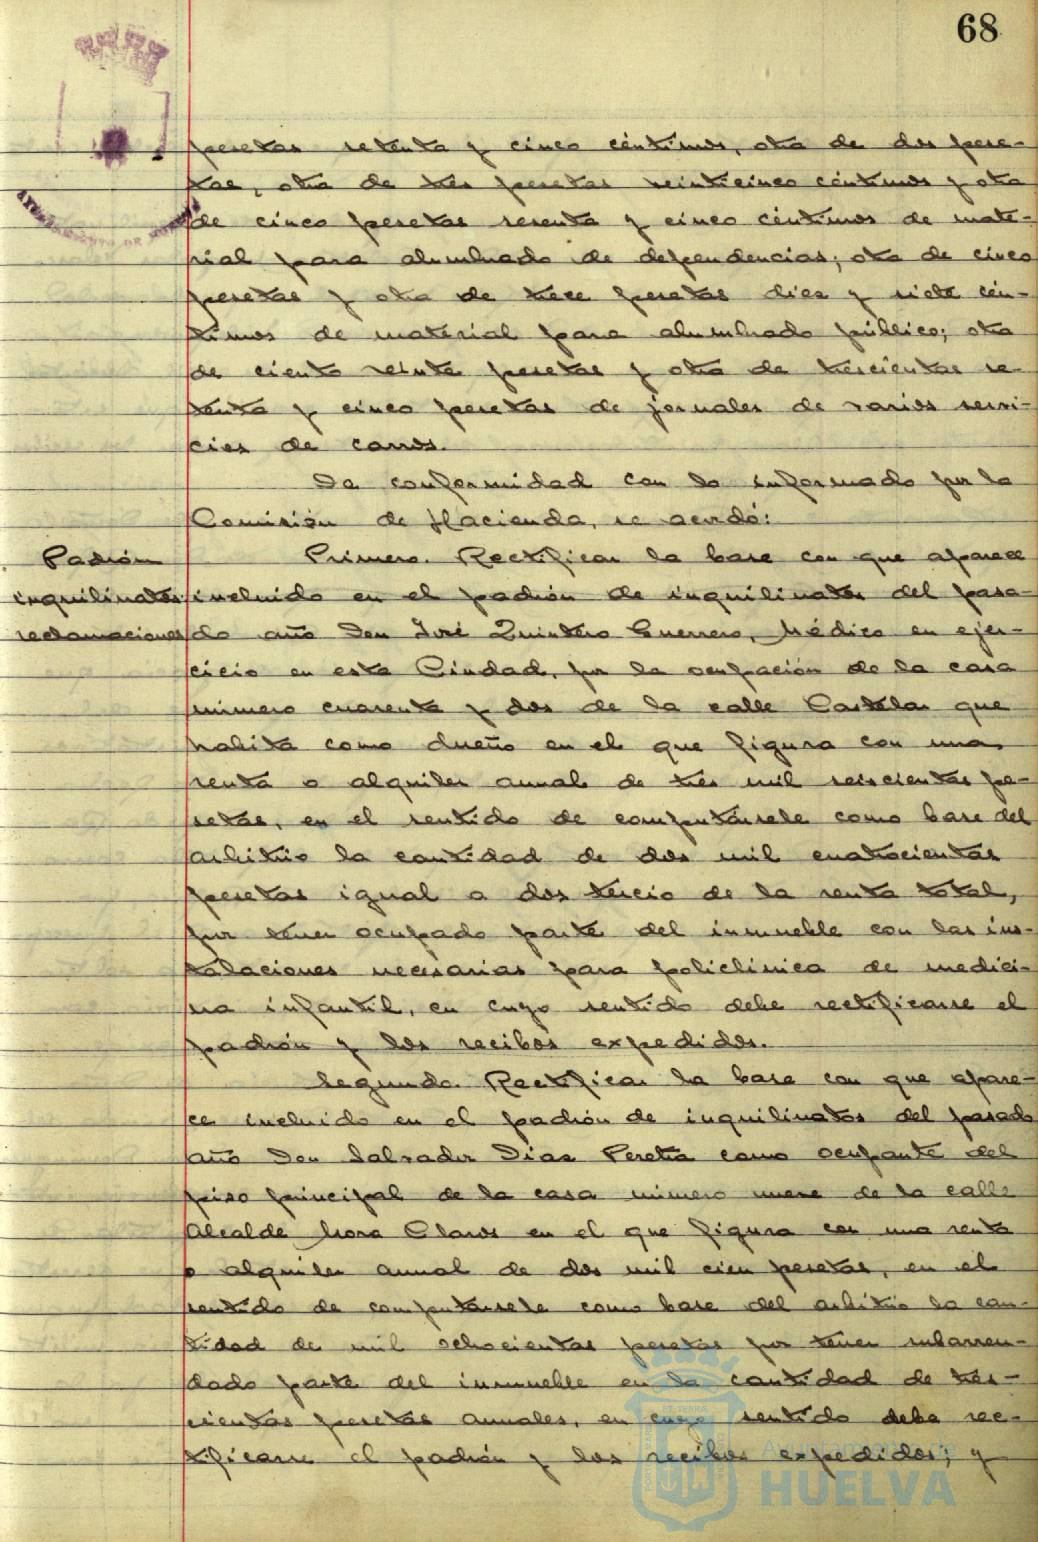 68
pesetas setenta y cinco céntimos, otra de dos pese-
tas, otra de tres pesetas veinticinco céntimos y otra
de cinco pesetas sesenta y cinco céntimos de mate-
rial para alumbrado de dependencias; otra de cinco
pesetas y otra de trece pesetas diez y siete cén-
timos de material para alumbrado público; otra
de ciento veinte pesetas y otra de trescientas se-
tenta y cinco pesetas de jornales de varios servi-
cios de carros.
De conformidad con lo informado por la
Comisión de Hacienda, se acordó:
Padrón
inquilinatos
reclamaciones
Primero. Rectificar la base con que aparece
incluido en el padrón de inquilinatos del pasa-
do año Don José Quintero Guerrero, Médico en ejer-
cicio en esta Ciudad, por la ocupación de la casa
número cuarenta y dos de la calle Castelar que
habita como dueño en el que figura con una
renta o alquiler anual de tres mil seiscientas pe-
setas, en el sentido de computársele como base del
arbitrio la cantidad de dos mil cuatrocientas
pesetas igual a dos tercio de la renta total,
por tener ocupado parte del inmueble con las ins-
talaciones necesarias para policlínica de medici-
na infantil, en cuyo sentido debe rectificarse el
padrón y los recibos expedidos.
Segundo. Rectificar la base con que apare-
ce incluido en el padrón de inquilinatos del pasado
año Don Salvador Díaz Peretta como ocupante del
piso principal de la casa número nueve de la calle
Alcalde Mora Claros en el que figura con una renta
o alquiler anual de dos mil cien pesetas, en el
sentido de computársele como base del arbitrio la can-
tidad de mil ochocientas pesetas por tener subarren-
dado parte del inmueble en la cantidad de tres-
cientas pesetas anuales, en cuyo sentido debe rec-
tificarse el padrón y los recibos expedidos; y
Ayuntamiento de
HUELVA